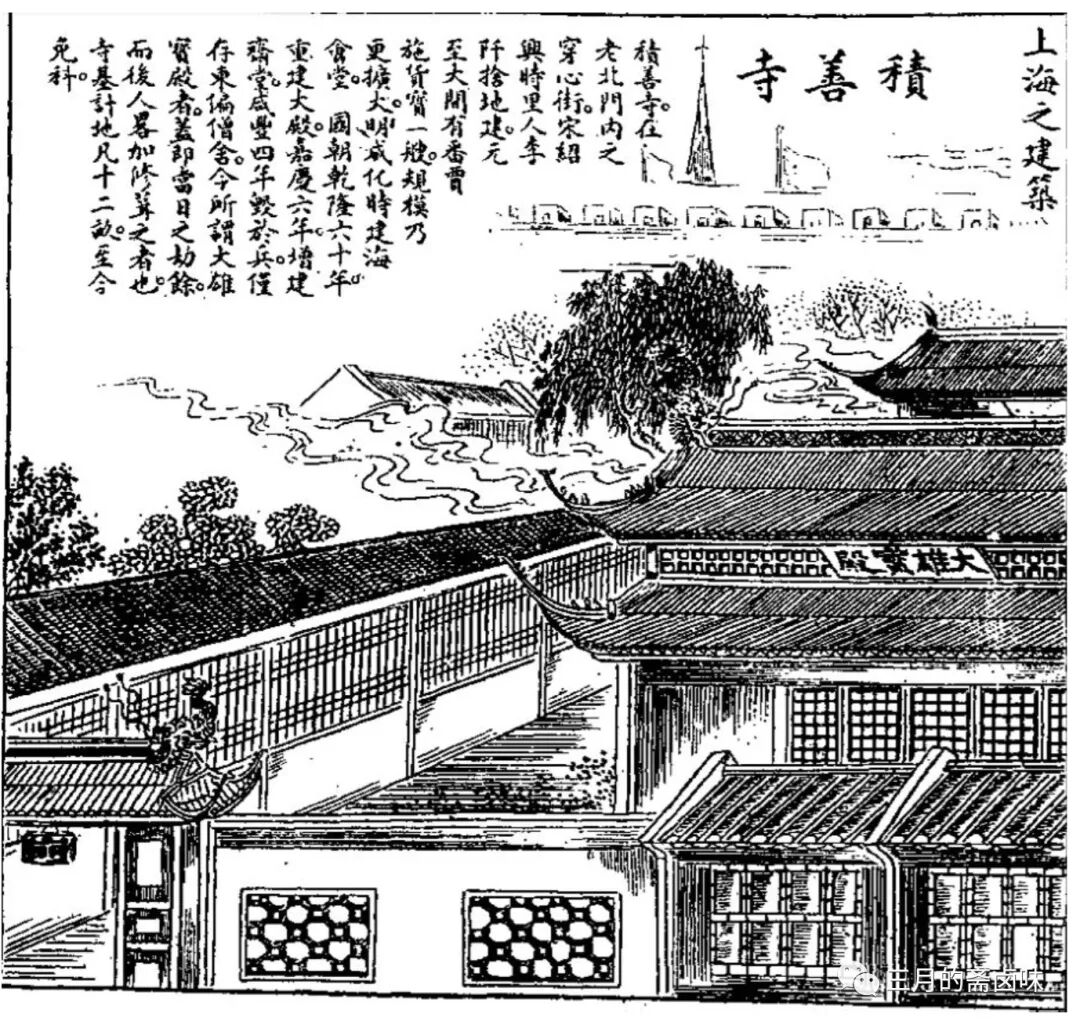 上海之建築
積善寺
積善寺。在
老北門內之
穿心街。宋紹
興時里人李
阡捨地建。元
至大間有番賈
施貨寶一艘。規模乃
更擴大。明成化時建海
會堂。國朝乾隆六十年。
重建大殿。嘉慶六年。增建
齋堂。咸豐四年毀於兵。僅
存東偏僧舍。今所謂大雄
寶殿者。蓋即當日之劫餘。
而後人畧加修葺之者也。
寺基計地凡十二畝。至今
免科。
大雄寶殿
三月的斋卤味